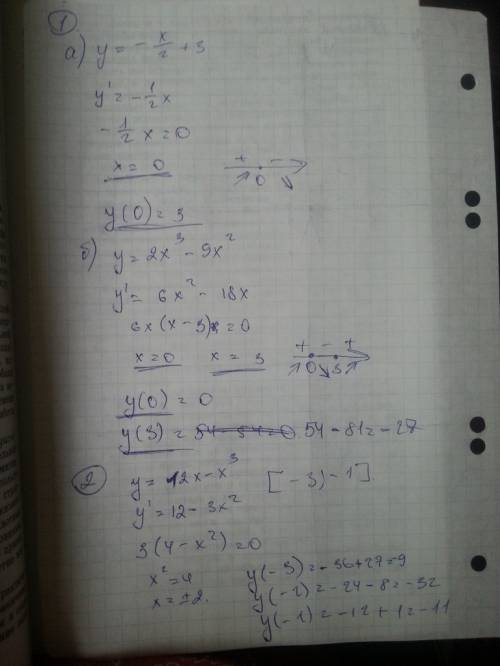 1
а) y = - x/2 + 3
y' = - 1/2 x
- 1/2 x = 0
x = 0
+ -
0
y(0) = 3
б) y = 2x³ - 9x²
y' = 6x² - 18x
6x(x - 3) = 0
x = 0 x = 3
+ - +
0 3
y(0) = 0
y(3) = 54 - 81 = -27
2
y = 12x - x³ [-3; -1]
y' = 12 - 3x²
3(4 - x²) = 0
x² = 4
x = ±2.
y(-3) = -36 + 27 = -9
y(-2) = -24 - 8 = -32
y(-1) = -12 + 1 = -11